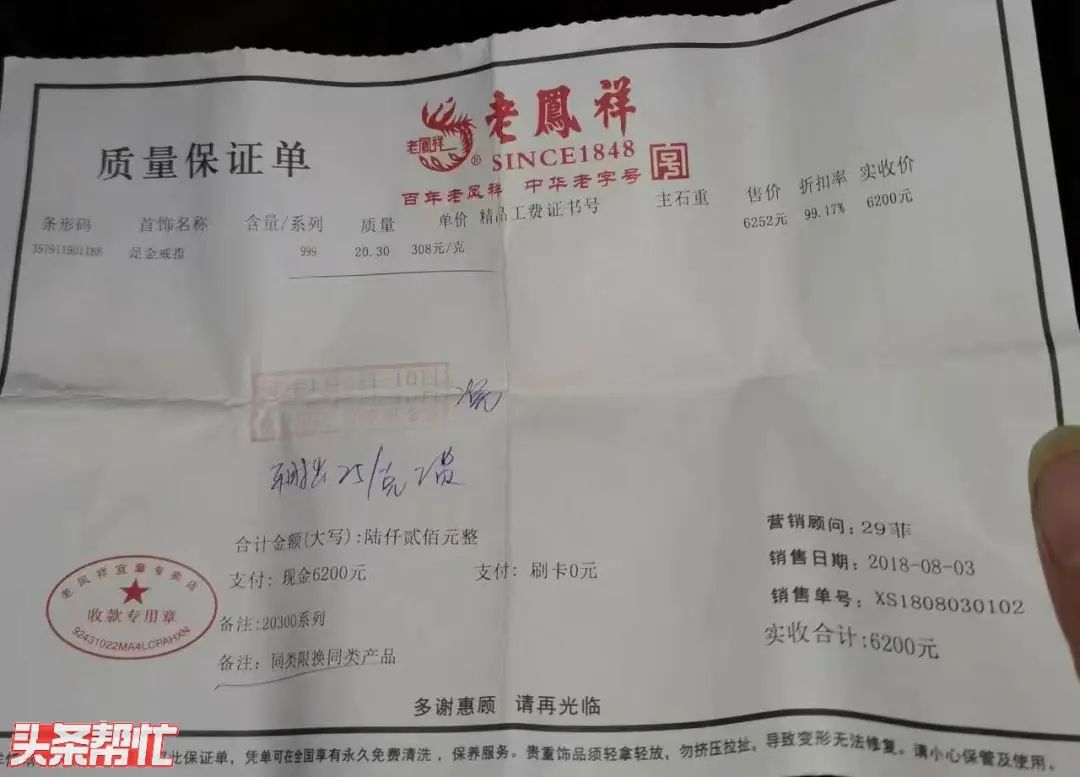 老鳳祥
老鳳祥
®
SINCE1848
百年老凤祥 中华老字号
质量保证单
条形码 首饰名称 含量/系列 质量 单价 精品工费 证书号 主石重 售价 折扣率 实收价
足金戒指 999 20.30 308元/克 6252元 99.17% 6200元
25/克
合计金额(大写):陆仟贰佰元整
支付: 现金6200元 支付: 刷卡0元
备注:20300系列
备注: 同类限换同类产品
营销顾问: 29菲
销售日期: 2018-08-03
销售单号: XS1808030102
实收合计:6200元
老凤祥宜章专卖店
收款专用章
92431022MA4LCPAHXN
多谢惠顾 请再光临
此保证单, 凭单可在全国享有永久免费清洗, 保养服务。贵重饰品须轻拿轻放, 勿挤压拉扯, 导致变形无法修复。请小心保管及使用。
头条帮忙